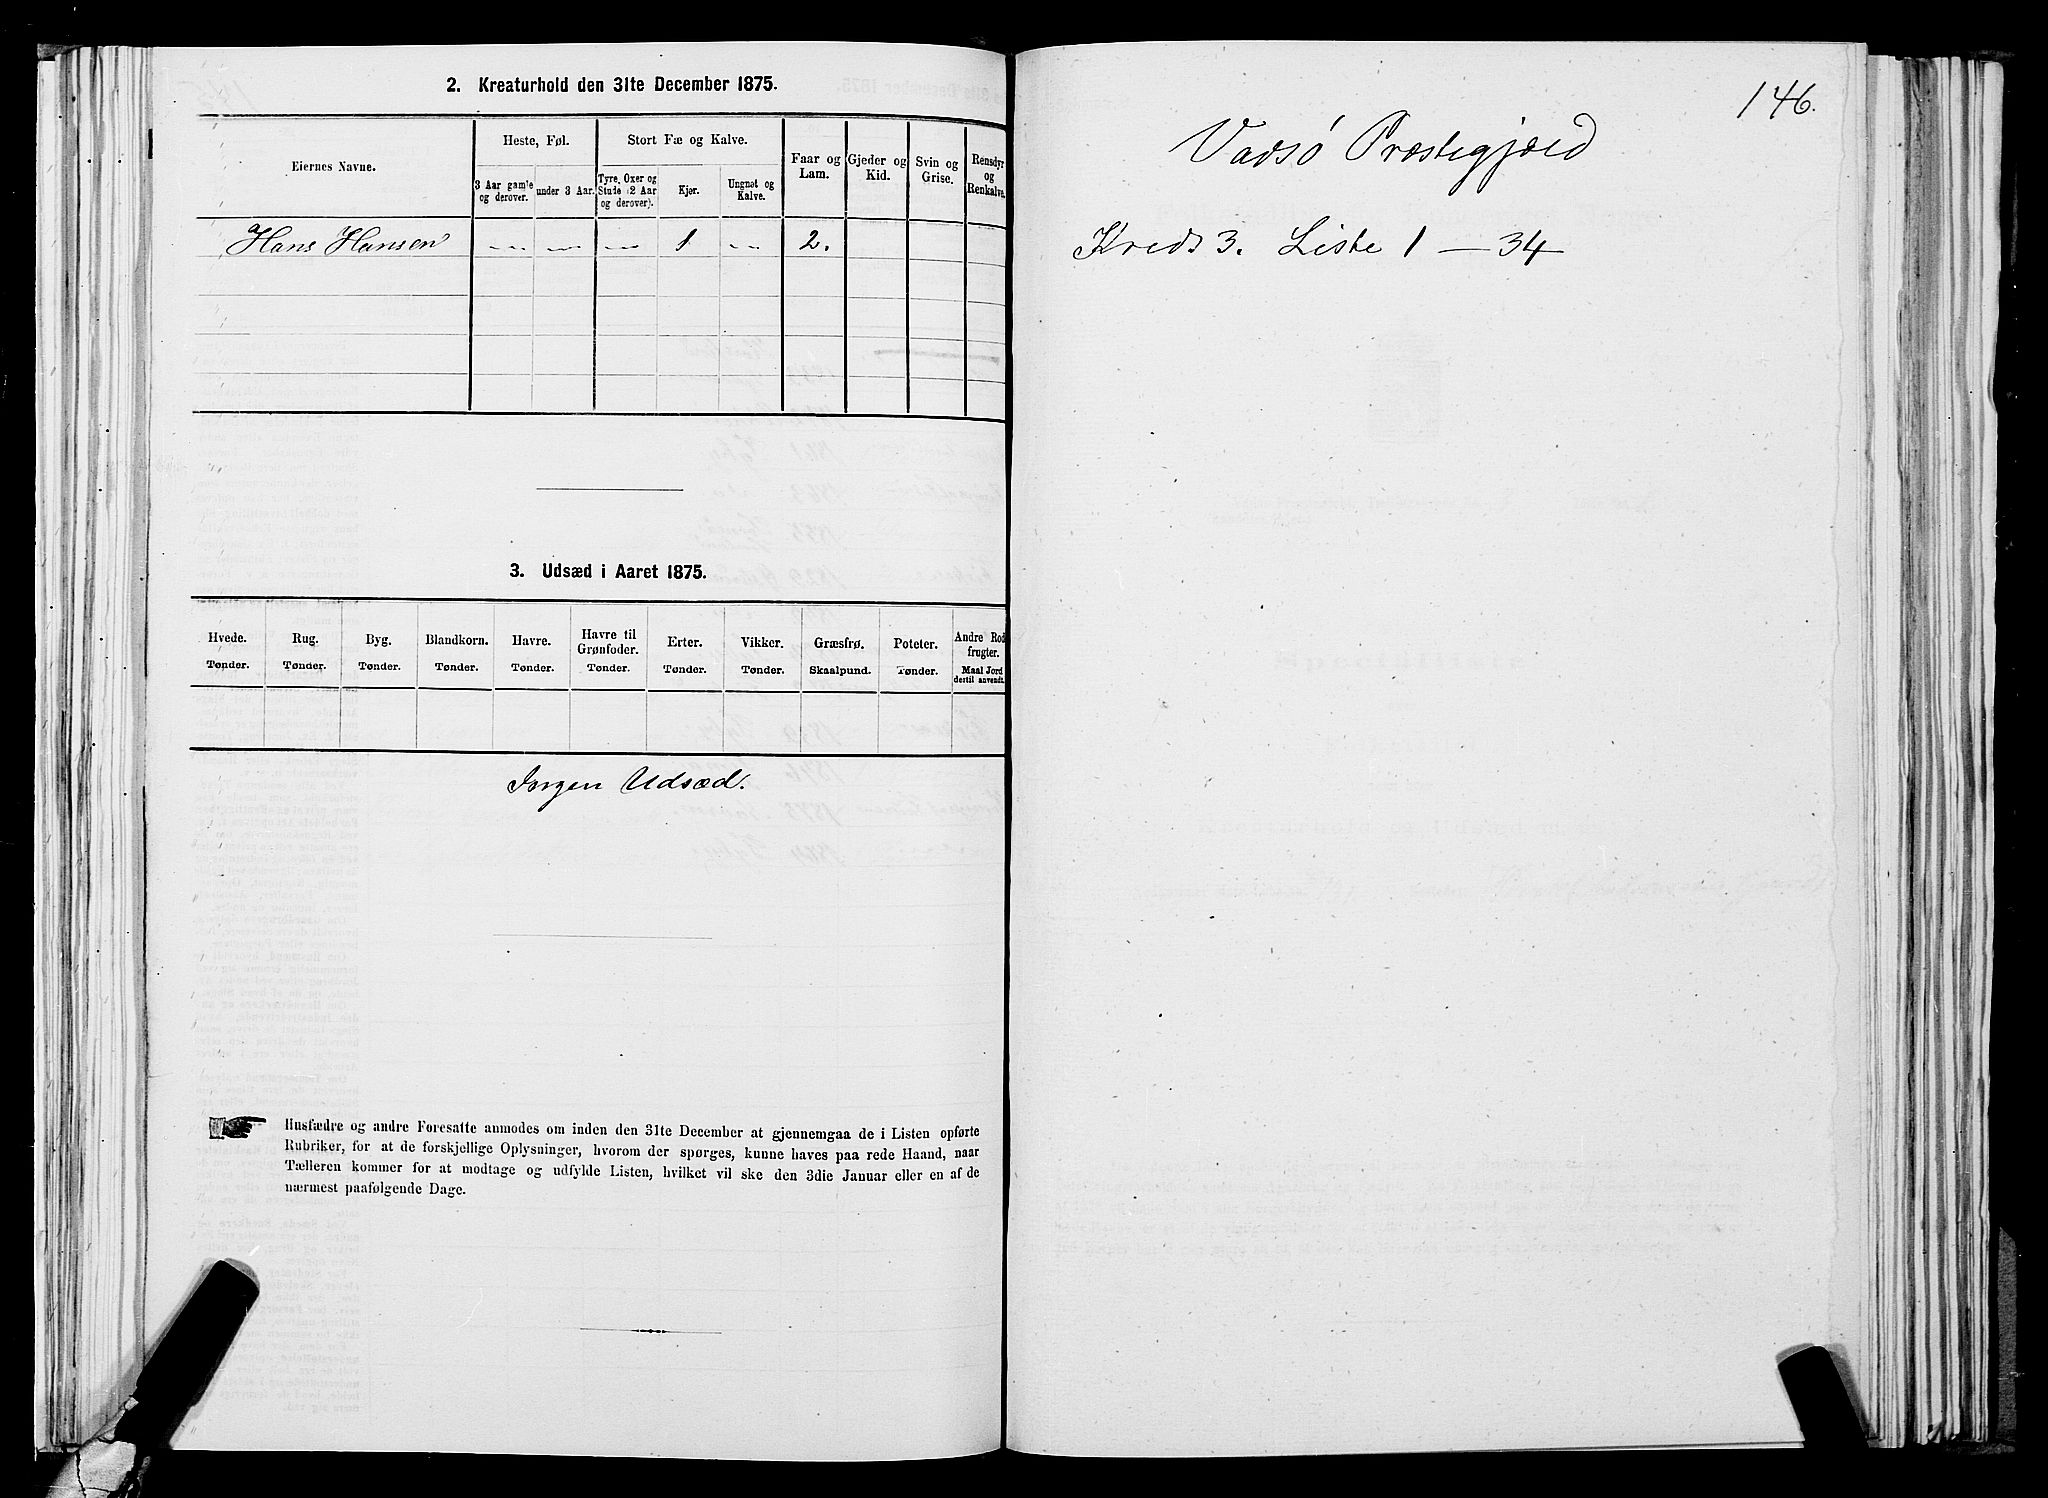 2. Kreaturhold den 31te December 1875.
Eiernes Navne.
Heste, Føl.
Stort Fæ og Kalve.
Faar og
Lam.
Gjeder og
Kid.
Svin og
Grise.
Rensdyr
og
Renkalve.
3 Aar gamle
og derover.
under 3 Aar.
Tyre, Oxer og
Stude (2 Aar
og derover).
Kjør.
Ungnøt og
Kalve.
Hans Hansen 1 2.
3. Udsæd i Aaret 1875.
Hvede. Rug. Byg. Blandkorn. Havre. Havre til Grønfoder. Erter. Vikker. Græsfrø. Poteter. Andre Rod
frugter.
Tønder. Tønder. Tønder. Tønder. Tønder. Tønder. Tønder. Tønder. Skaalpund. Tønder. Maal Jord
dertil anvendt.
Ingen Udsæd.
Husfædre og andre Foresatte anmodes om inden den 31te December at gjennemgaa de i Listen opførte
Rubriker, for at de forskjellige Oplysninger, hvorom der spørges, kunne haves paa rede Haand, naar
Tælleren kommer for at modtage og udfylde Listen, hvilket vil ske den 3die Januar eller en af de
nærmest paafølgende Dage.
146.
Vadsø Præstegjæld
Kreds 3. Liste 1 — 34